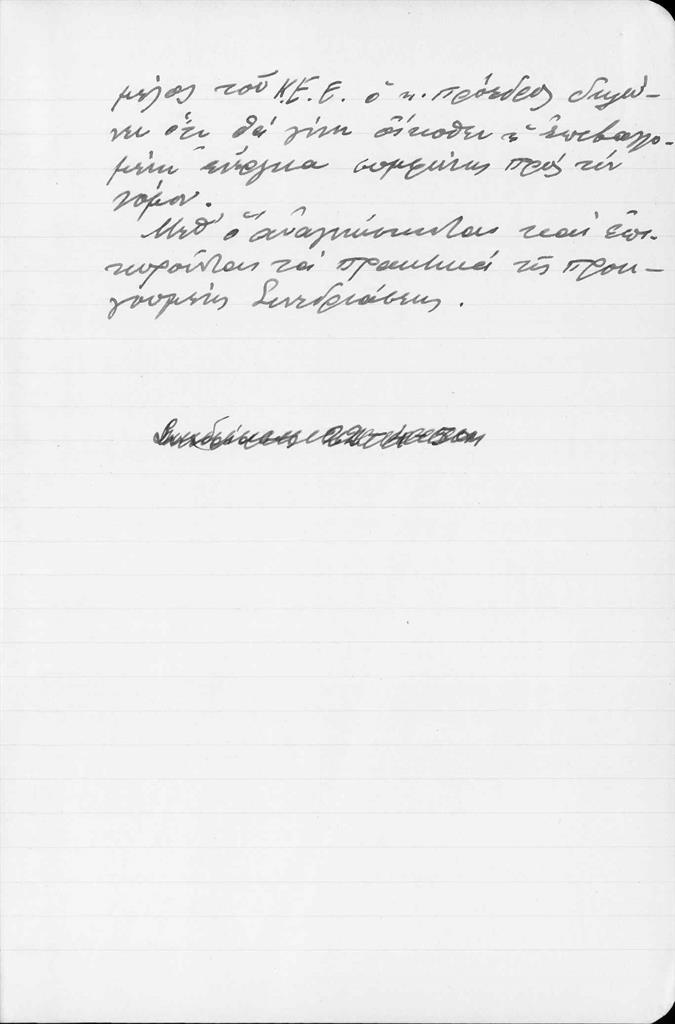 μέλος τοῦ Κ.Ε.Ε. ὁ κ. πρόεδρος δηλώ-
νει ὅτι θά γίνῃ οἴκοθεν ἡ ἐπιβαλλο-
μένη ἐνέργεια συμφώνως πρός τόν
νόμον.
Μεθ' ὅ ἀναγινώσκονται καί ἐπι-
κυροῦνται τά πρακτικά τῆς προη-
γουμένης Συνεδριάσεως.